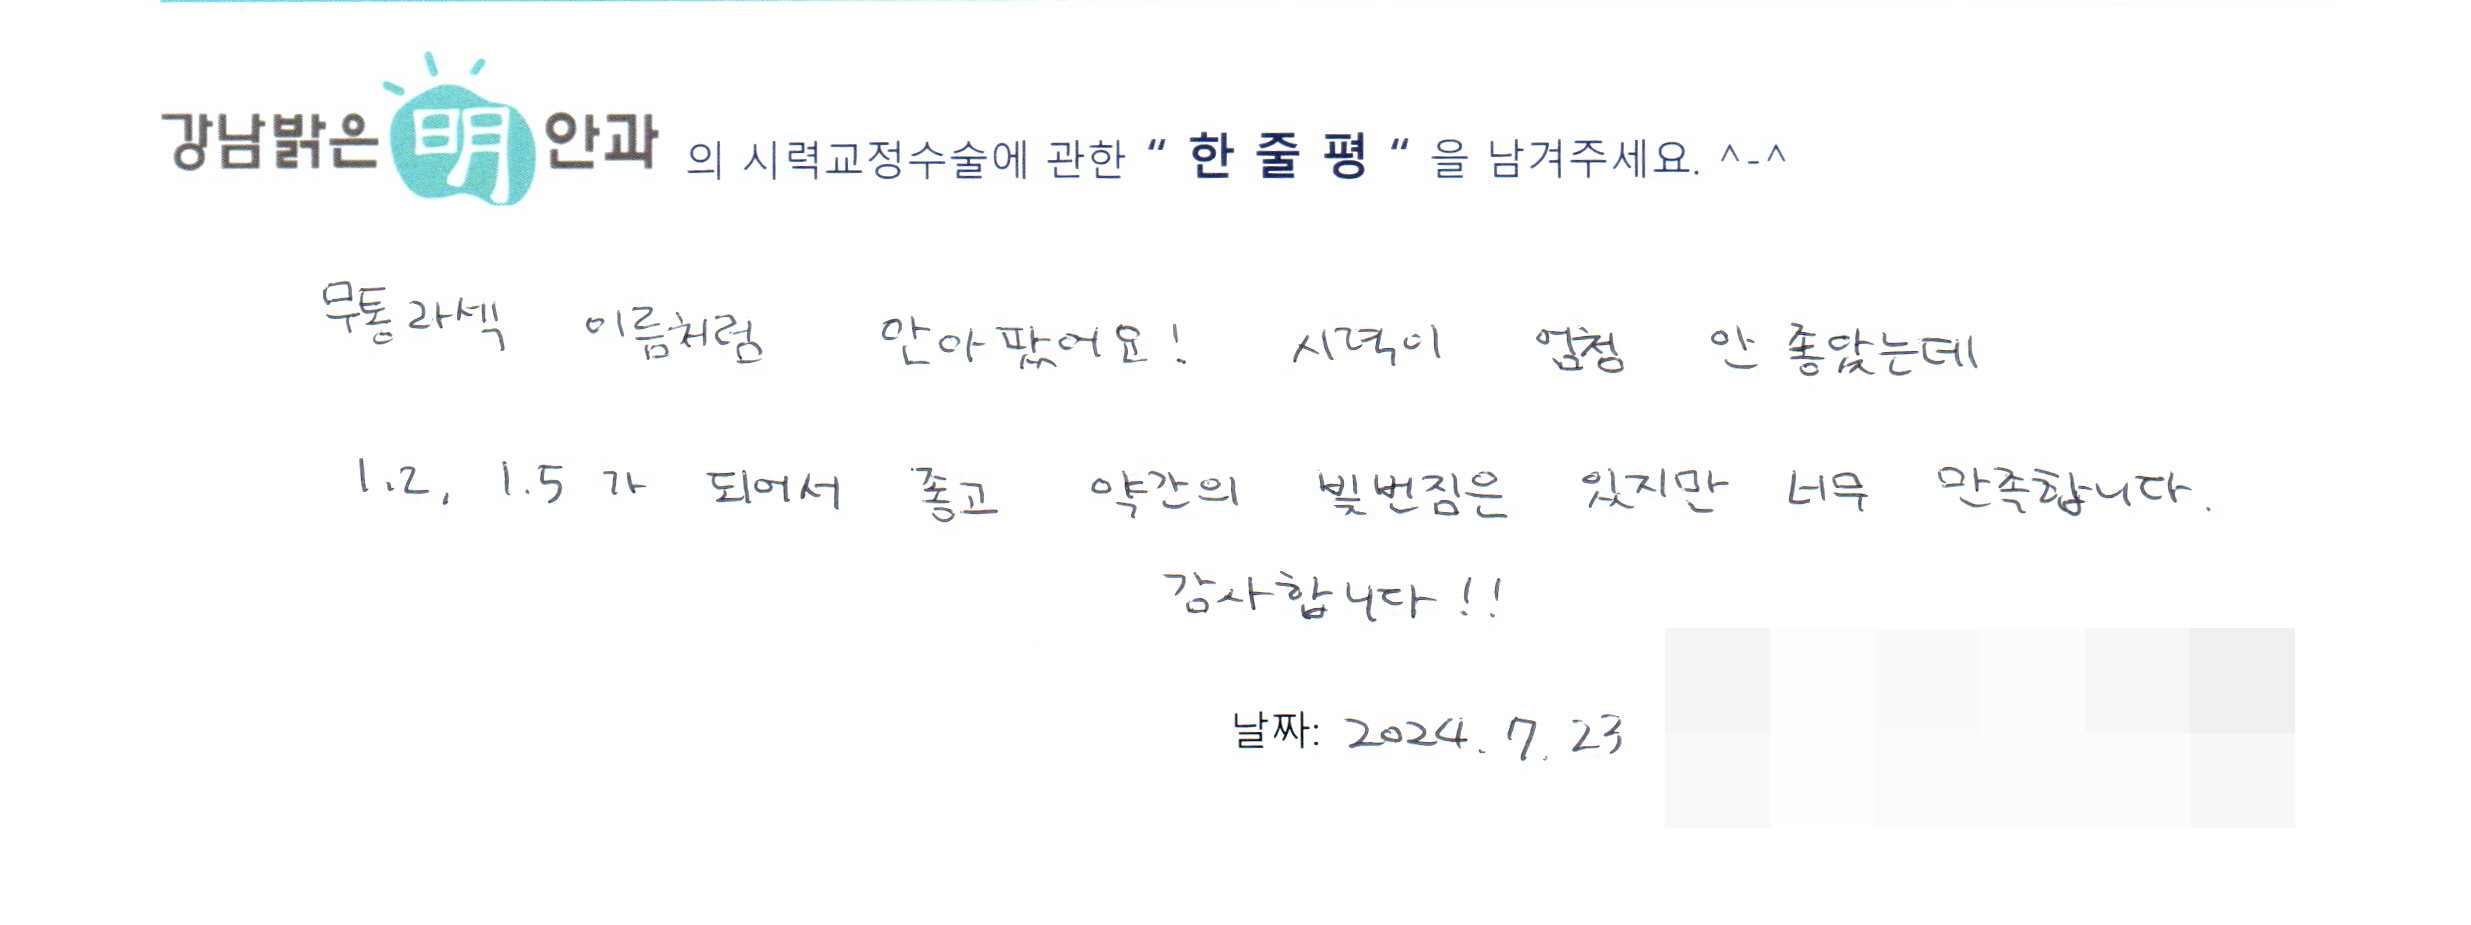 강남밝은明안과 의 시력교정수술에 관한 “ 한 줄 평 “ 을 남겨주세요. ^-^
무통라섹 이름처럼 안아팠어요! 시력이 엄청 안좋았는데
1.2, 1.5가 되어서 좋고 약간의 빛번짐은 있지만 너무 만족합니다.
감사합니다!!
날짜: 2024. 7. 23